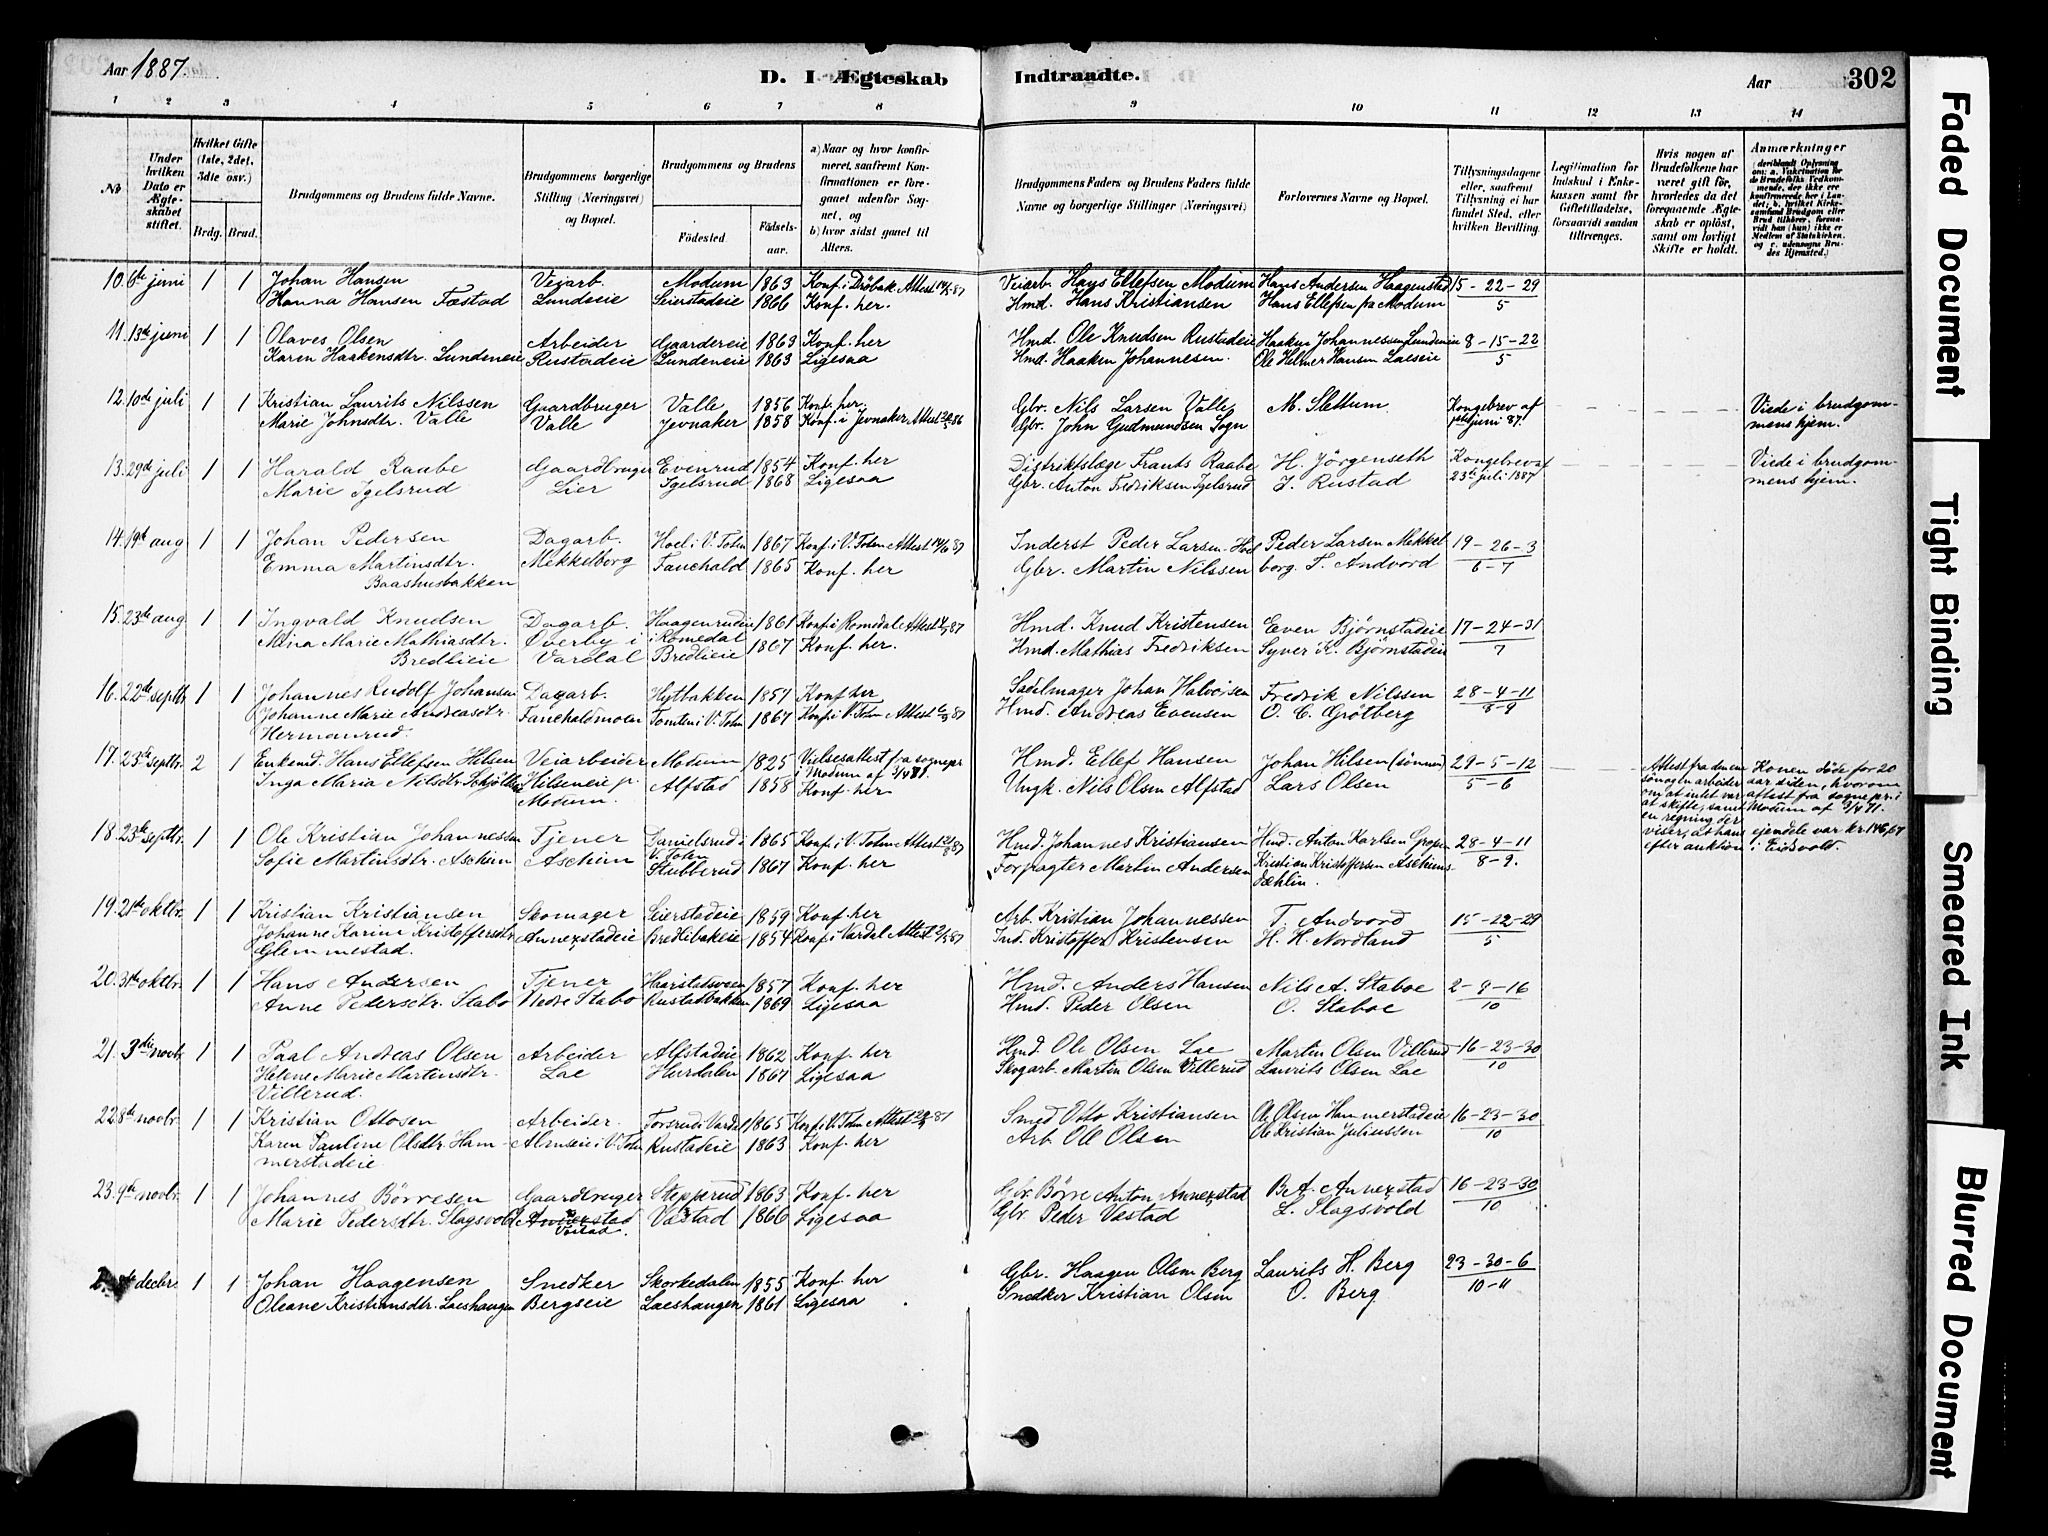 Aar 1887.
D. I Ægteskab Indtraadte.
Aar
302
1 2 3 4 5 6 7 8 9 10 11 12 13 14
No
Under hvilken Dato er Ægteskabet stiftet.
Hvilket Gifte (1ste, 2det, 3die osv.)
Brdg. Brud.
Brudgommens og Brudens fulde Navne.
Brudgommens borgerlige Stilling (Næringsvei) og Bopæl.
Brudgommens og Brudens
Födested. Födselsaar.
a) Naar og hvor konfirmeret, saafremt Konfirmationen er foregaaet udenfor Sognet, og
b) hvor sidst gaaet til Alters.
Brudgommens Faders og Brudens Faders fulde Navne og borgerlige Stillinger (Næringsvei)
Forlovernes Navne og Bopæl.
Tillysningsdagene eller, saafremt Tillysning ei har fundet Sted, efter hvilken Bevilling.
Legitimation for Indskud i Enkekassen samt for Giftetilladelse, forsaavidt saadan tiltrænges.
Hvis nogen af Brudefolkene har været gift før, hvorledes da det foregaaende Ægteskab er opløst, samt om lovligt Skifte er holdt.
Anmærkninger
10. 6te juni 1 1 Johan Hansen Vejarb. Modum 1863 Konf. i Dröbak Attest Veiarb. Hans Ellefsen Modum Hans Andersen Haagenstad 15-22-29
Hanna Hansen Fæstad Lundeeie Seierstadeie 1866 Konf. her. Hmd. Hans Kristiansen Hans Ellefsen fra Modum 5
11. 13de juni 1 1 Olaves Olsen Arbeider Gaardereie 1863 Konf. her Hmd. Ole Knudsen Rustadeie Haaken Johannessen Lundeneie 8-15-22
Karen Haakensdtr. Lundeneie Rustadeie Lundeneie 1863 Ligesaa Hmd. Haaken Johannesen. Ole Helmer Hansen Laeseie 5
12. 10de juli 1 1 Kristian Laurits Nilssen Gaardbruger Valle 1856 Konf. her. Gbr. Nils Larsen Valle M. Slettum Kongebrev af Viede i brudgom-
Marie Johnsdtr. Valle Valle Jevnaker 1858 Konf. i Jevnaker Attest Gbr. John Gudmundsen Sogn juni 87. mens hjem.
13. 29de juli 1 1 Harald Raabe Gaardbruger Evenrud 1854 Konf. her Distriktslæge Frants Raabe H. Jörgenseth Kongebrev af Viede i brudgom-
Marie Igelsrud Lier Igelsrud 1868 Ligesaa Gbr. Anton Fredriksen Igelsrud J. Rustad 23de juli 1887 mens hjem.
14. 19de aug 1 1 Johan Pedersen Dagarb. Hoel i V. Toten 1867 Konf. i V. Toten Attest 14/6 87 Inderst Peder Larsen Hoel Peder Larsen Mekkel 19-26-3
Emma Martinsdtr. Mekkelborg Fauchald 1865 Konf. her Gbr. Martin Nilssen borg. T. Andvord 6-7
Baashusbakken
15. 23de aug 1 1 Ingvald Knudsen Dagarb. Haagenrudeie 1861 Konf. i Romedal Attest Hmd. Knud Kristensen Even Bjørnstadeie 17-24-31
Mina Marie Mathiasdtr. Øverby i i Romedal Hmd. Mathias Fredriksen Syver K. Bjørnstadeie 7
Bredlieie Vardal Bredlieie 1867 Konf. her.
16. 22de septbr. 1 1 Johannes Rudolf Johansen Dagarb. Hytbakken 1857 Konf her Sadelmager Johan Halvorsen Fredrik Nilssen 28-4-11
Johanne Marie Andreasdtr. Fauchaldmoen Tomten i V. Toten 1867 Konf. i V. Toten Attest Hmd. Andreas Evensen O. C. Grøtberg 8-9
Hermanrud
17. 23de septbr. 2 1 Enkemd. Hans Ellefsen Hilsen Veiarbeider Modum 1825 Vielsesattest fra sognepr. Hmd. Ellef Hansen Johan Hilsen (sønnen) 29-5-12
Inga Maria Nilsdtr. Hilseneie p. Alfstad 1858 i Modum af 3/4 71. Ungk. Nils Olsen Alfstad Lars Olsen 5-6
Modum. Konf. her
Attest fra denne
sönogen arbeider
om at intet var
at skifte, samt
en regning der
viser, at hans
efter auktion
Konen döde for 20
aar siden, hvorom
attest fra sognepr. i
Modum af 3/4 71.
ejendele var kr. 146,67
i Eidsvold.
18. 23de septbr. 1 1 Ole Kristian Johannessen Tjener Danielsrud i 1865 Konf. i V. Toten Attest Hmd. Johannes Kristiansen Hmd. Anton Karlsen 28-4-11
Sofie Martinsdtr. Aschim Aschim V. Toten Forpagter Martin Andersen Kristian Kristoffersen Aschims- 8-9.
Stubberud 1867 Konf. her Dæhlin.
19. 21de oktbr. 1 1 Kristian Kristiansen Skomager Seierstadeie 1859 Konf. her Arb. Kristian Johannessen T. Andvord 15-22-29
Johanne Karine Kristoffersdtr. Annexstadeie Bredlibakeie 1854 Konf i Vardal Attest Ind. Kristoffer Kristensen H. H. Nordland 5
Glemmestad.
20. 31te oktbr. 1 1 Hans Andersen Tjener Haarstadsveen 1857 Konf. her Hmd. Anders Hansen Nils A. Staboe 2-9-16
Anne Pedersdtr. Stabo Nedre Stabo Rustadbakken 1869 Ligesaa Hmd. Peder Olsen O. Staboe 10
21. 3die novbr. 1 1 Paal Andreas Olsen Arbeider Alfstadeie 1862 Konf. her Hmd. Ole Olsen Lae Martin Olsen Villerud 16-23-30
Helene Marie Martinsdtr. Lae Hurdalen 1867 Ligesaa Skogarb. Martin Olsen Villerud Laurits Olsen Lae 10
Villerud.
22. 8de novbr. 1 1 Kristian Ottosen Arbeider. Forsrud i Vardal 1865 Konf. i V. Toten Attest Smed Otto Kristiansen Ole Olsen Hammerstadeie 16-23-30
Karen Pauline Olsdtr. Ham- Almseie i V. Toten Rustadeie 1863 Konf. her Arb. Ole Olsen Ole Kristian Juliussen 10
merstadeie.
23. 9de novbr. 1 1 Johannes Börresen Gaardbruger Stepperud 1863 Konf. her Gbr. Börre Anton Annexstad B. A. Annexstad 16-23-30
Marie Pedersdtr. Slagsvold Annexstad Vastad 1866 Ligesaa Gbr. Peder Vastad L. Slagsvold 10
decbr. 1 1 Johan Haagensen Snedker Skorkedalen 1855 Konf. her Gbr. Haagen Olsen Berg Laurits H. Berg 23-30-6
Oleane Kristiansdtr. Laeshaugen Bergseie Laeshaugen 1861 Ligesaa Snedker Kristian Olsen O. Berg 10-11
Faded Document
Tight Binding
Smeared Ink
Blurred Document